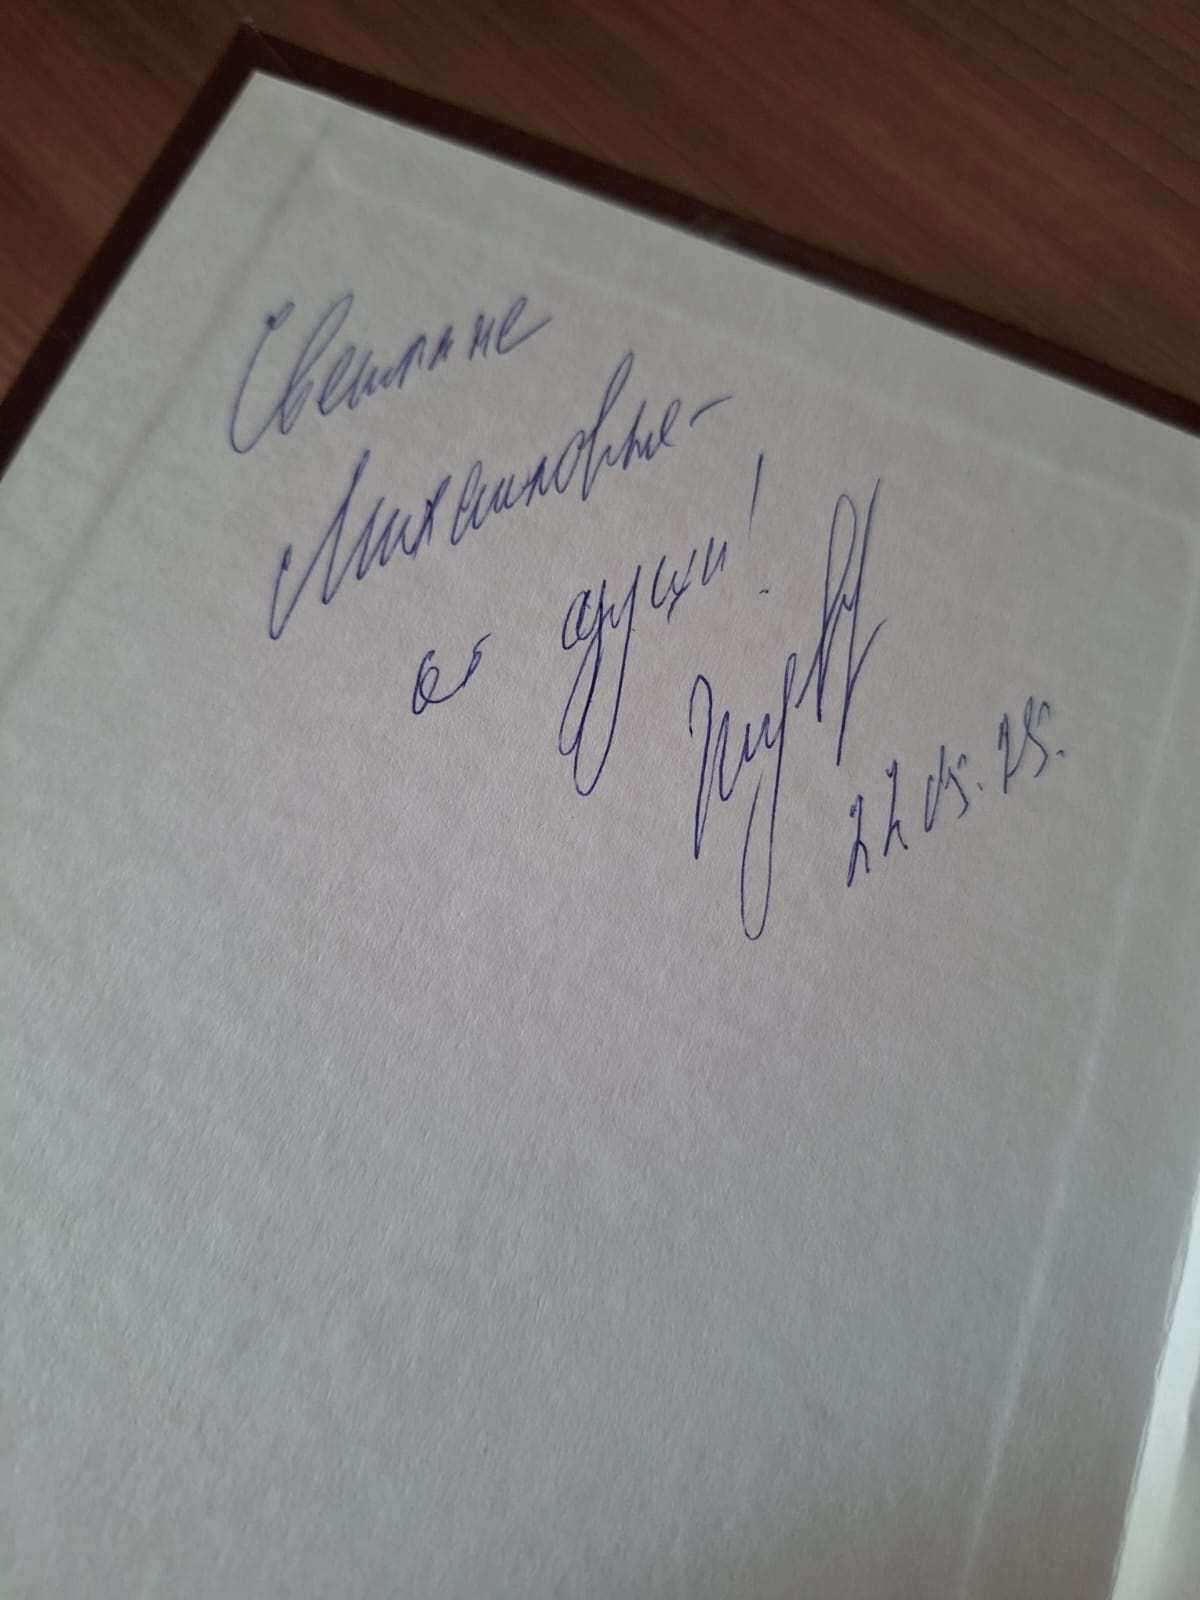 Светлане
Михайловне -
от души!
22.05.25.